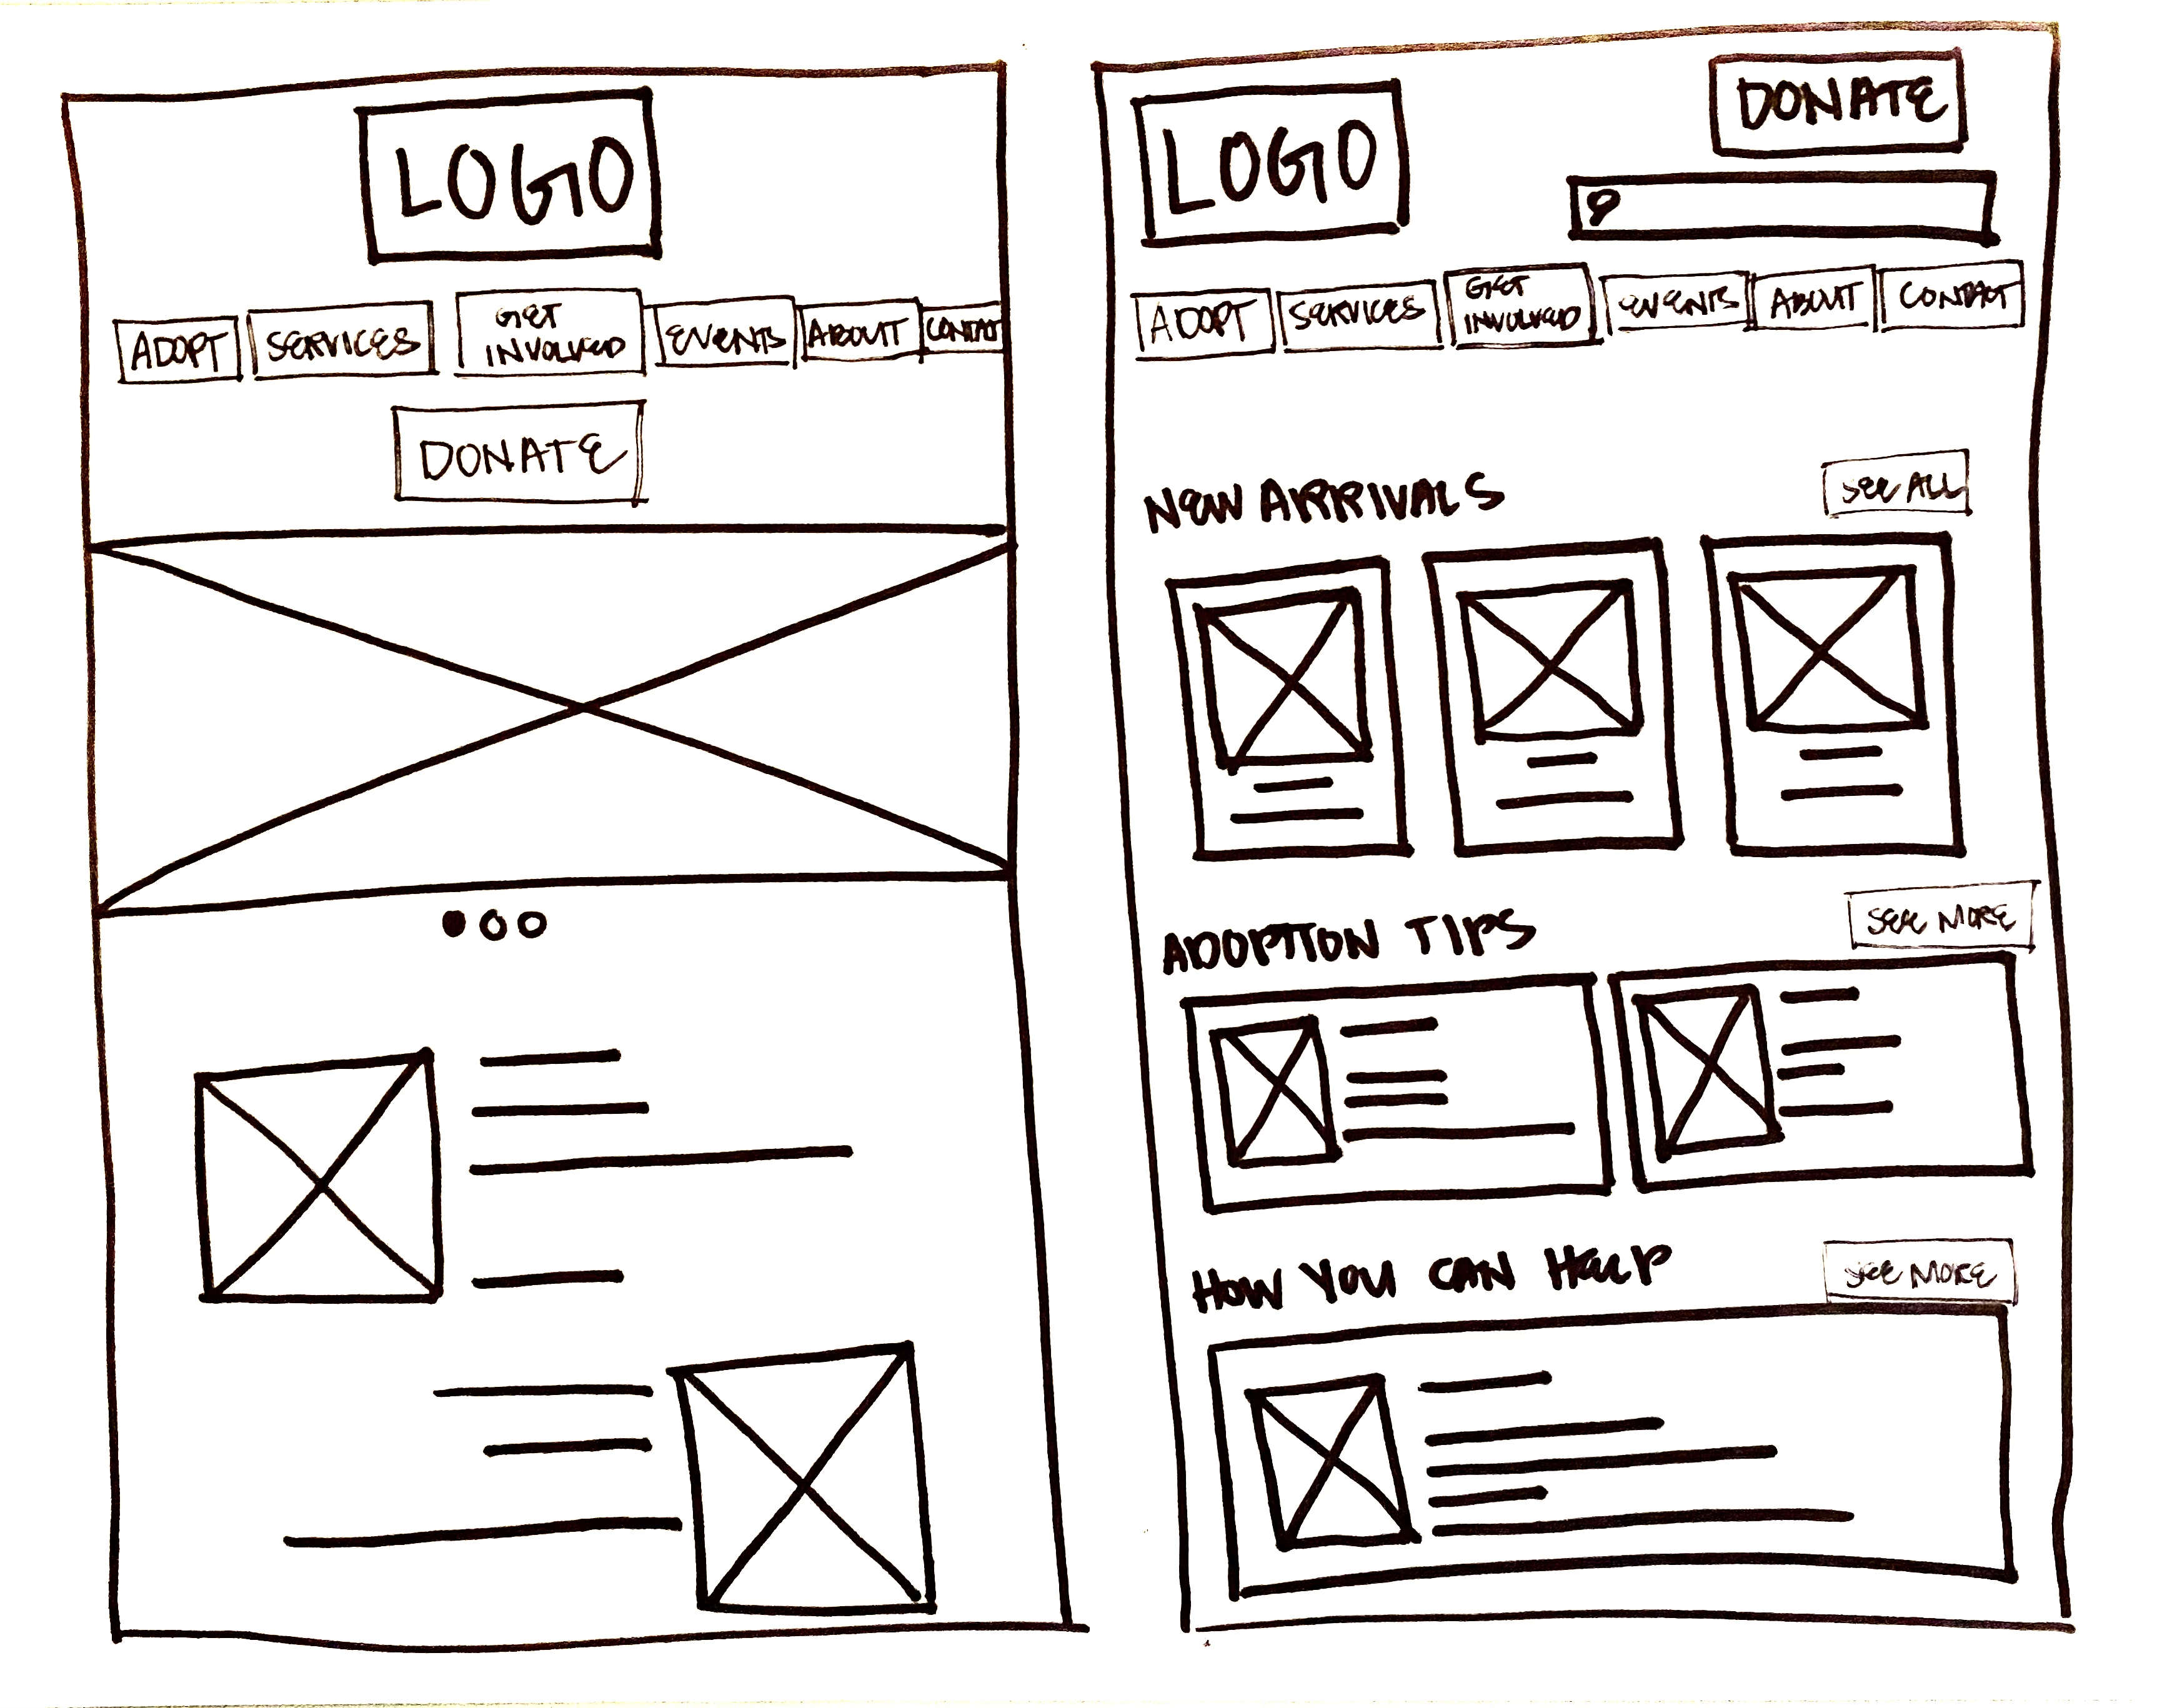 LOGO
ADOPT SERVICES GET INVOLVED EVENTS ABOUT CONTACT
DONATE
LOGO
DONATE
ADOPT SERVICES GET INVOLVED EVENTS ABOUT CONTACT
NEW ARRIVALS
SEE ALL
ADOPTION TIPS
SEE MORE
HOW YOU CAN HELP
SEE MORE